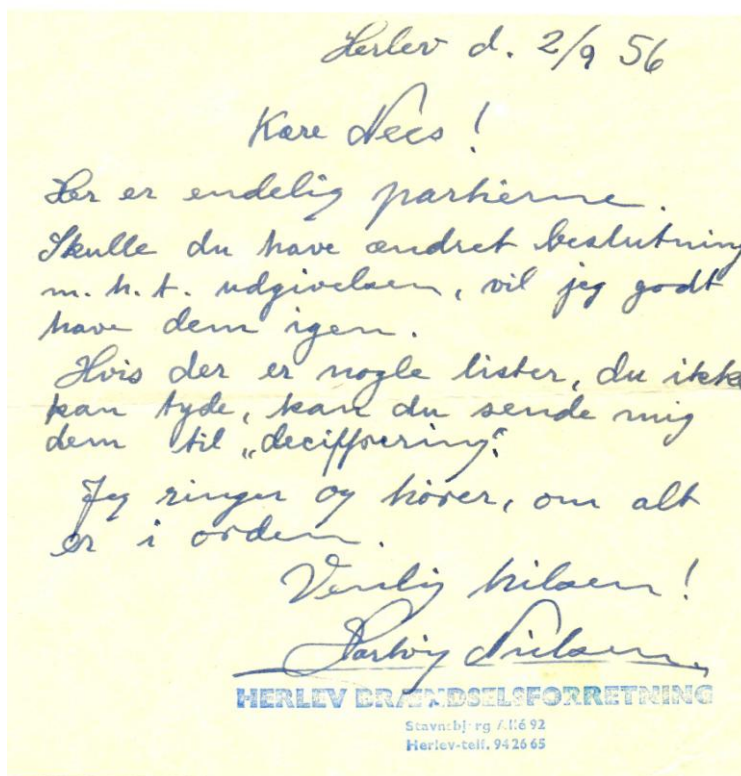 Herlev d. 2/9 56
Kære Nees!
Her er endelig partierne.
Skulle du have ændret beslutning
m.h.t. udgivelsen, vil jeg godt
have dem igen.
Hvis der er nogle lister, du ikke
kan tyde, kan du sende mig
dem til „deciffrering“.
Jeg ringer og hører, om alt
er i orden.
Venlig hilsen!
Nielsen.
HERLEV BRÆNDSELSFORRETNING
92
Herlev-telf. 942665